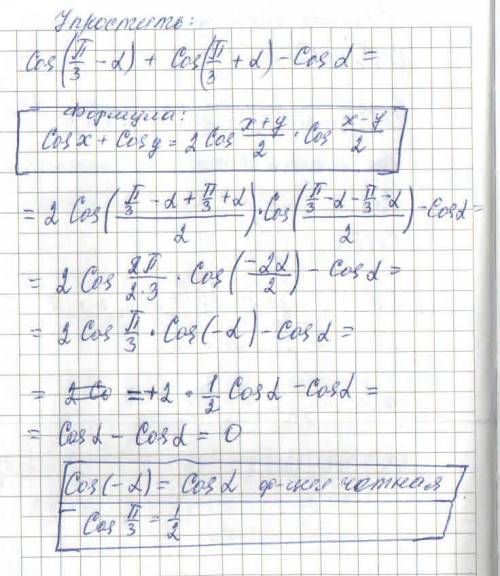 Упростить:
Cos(π/3 - α) + Cos(π/3 + α) - Cos α =
Формула:
Cos x + Cos y = 2 Cos (x+y)/2 · Cos (x-y)/2
= 2 Cos((π/3 - α + π/3 + α)/2) · Cos((π/3 - α - π/3 - α)/2) - Cos α =
= 2 Cos 2π/(2·3) · Cos(-2α/2) - Cos α =
= 2 Cos π/3 · Cos(-α) - Cos α =
= 2 Co = +2 · 1/2 Cos α - Cos α =
= Cos α - Cos α = 0
Cos(-α) = Cos α ф-ция чотная
Cos π/3 = 1/2